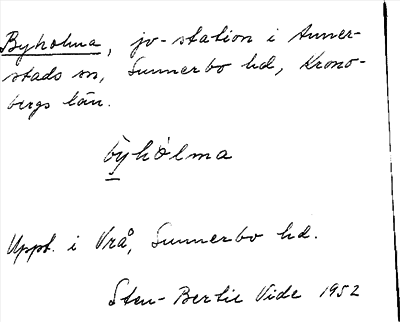 Byholma, jv-station i Anner-
stads sn, Sunnerbo hd, Krono-
bergs län.
byhòlma
Uppt. i Vrå, Sunnerbo hd.
Sten-Bertil Vide 1952